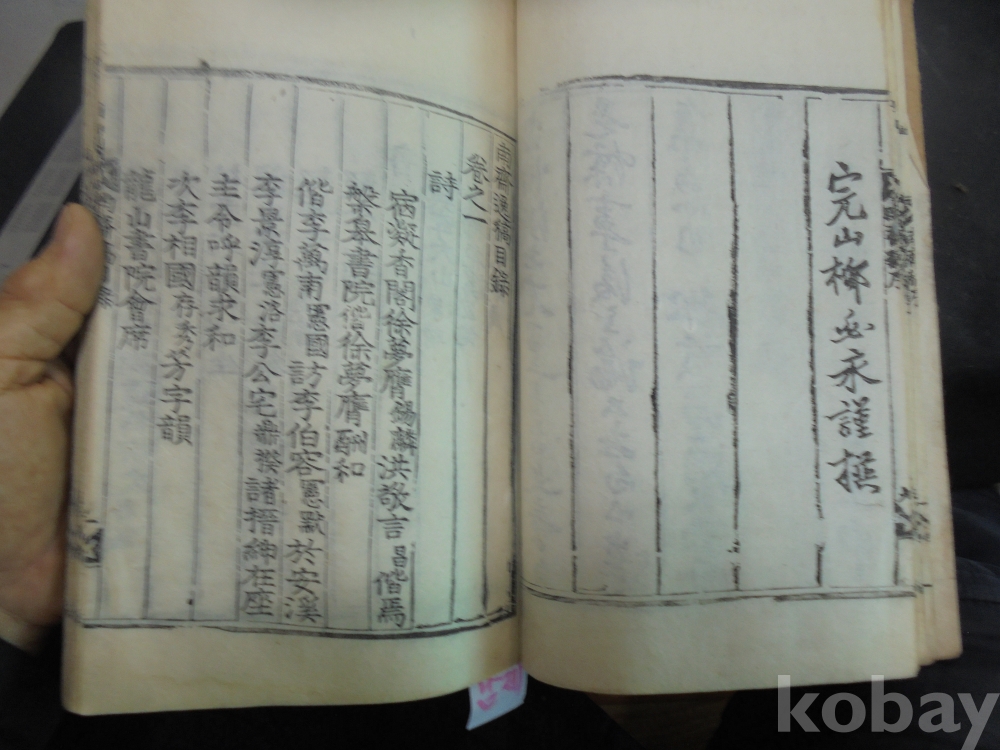 完山柳必永謹撰
遺稿目錄
卷之一
詩
宿凝香閣徐夢膺錫麟洪敬言昌偕焉
槃皋書院偕徐夢膺酬和
偕李萬甫憲國訪李伯容憲默於安溪
李景淳憲洛李公宅諸搢紳在座
主令呼韻求和
次李相國存秀芳字韻
龍山書院會席
kobay